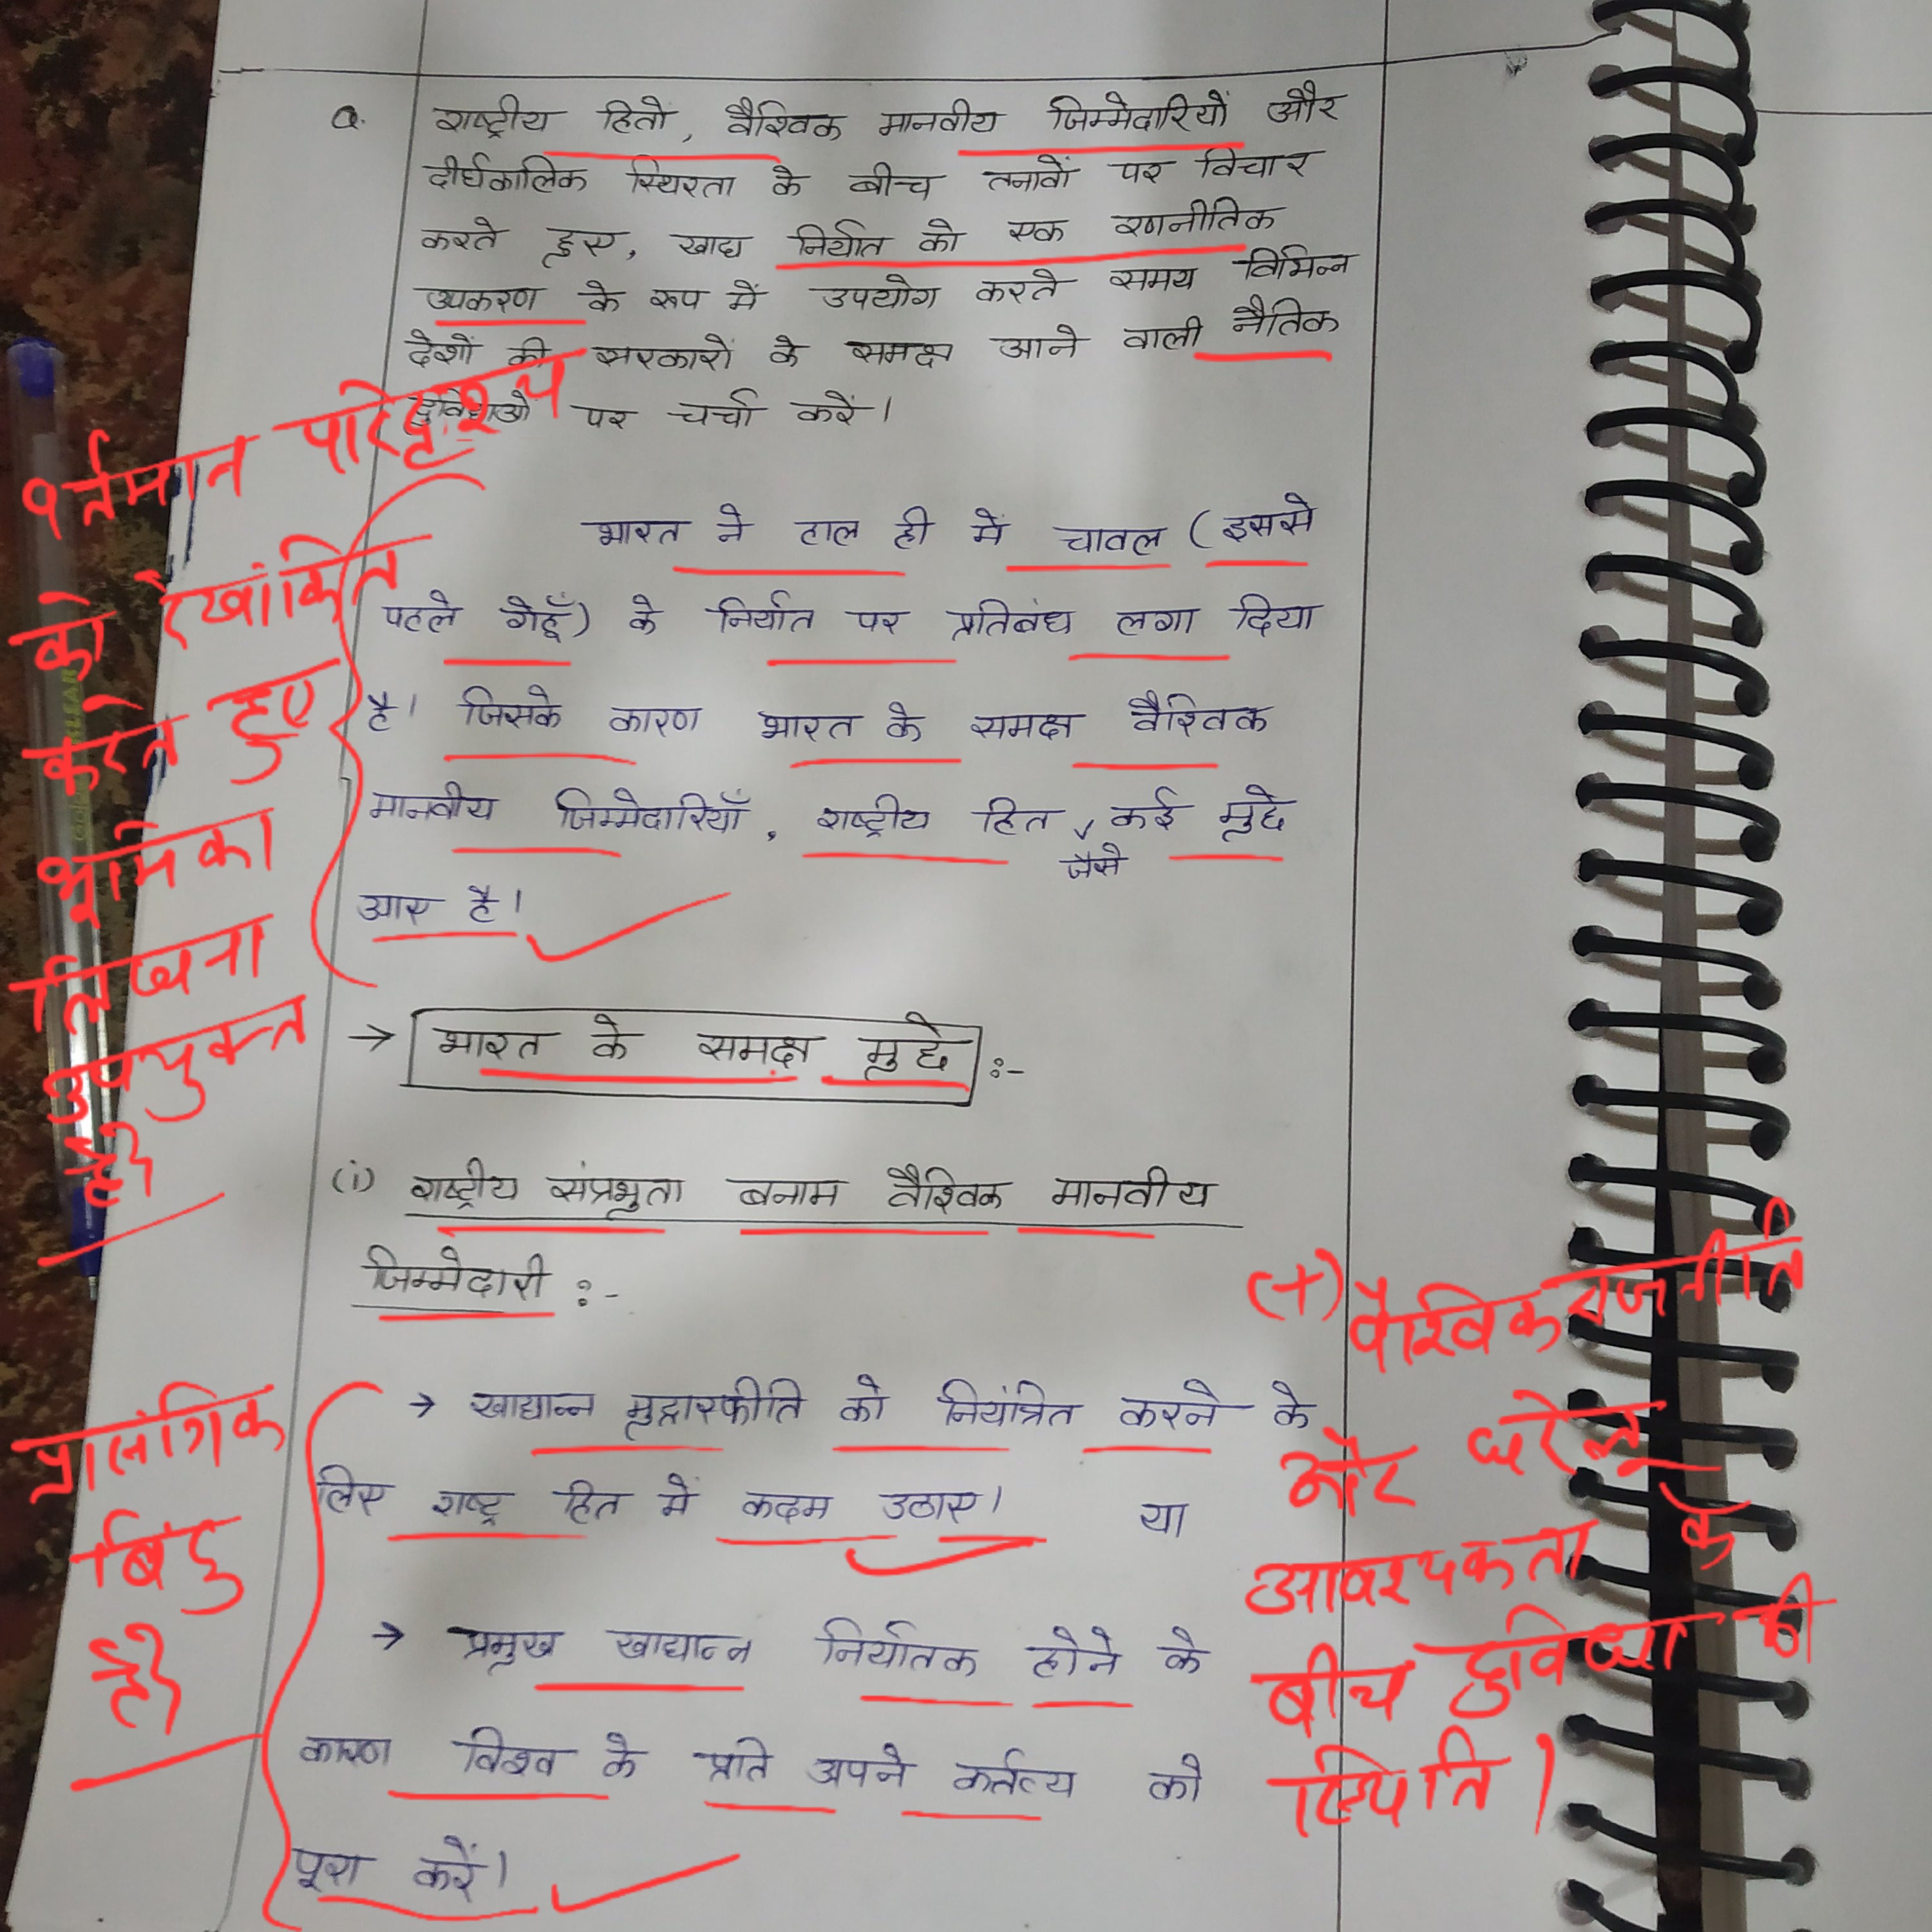 Q. राष्ट्रीय हितों, वैश्विक मानवीय जिम्मेदारियों और
दीर्घकालिक स्थिरता के बीच तनावों पर विचार
करते हुए, खाद्य निर्यात को एक रणनीतिक
उपकरण के रूप में उपयोग करते समय विभिन्न
देशों की सरकारों के समक्ष आने वाली नैतिक
दुविधाओं पर चर्चा करें।
वर्तमान परिदृश्य
को रेखांकित
करते हुए
भूमिका
लिखना
उपयुक्त
है
भारत ने हाल ही में चावल (इससे
पहले गेहूँ) के निर्यात पर प्रतिबंध लगा दिया
है। जिसके कारण भारत के समक्ष वैश्विक
मानवीय जिम्मेदारियाँ, राष्ट्रीय हित जैसे कई मुद्दे
आए है।
→ भारत के समक्ष मुद्दे :-
(i) राष्ट्रीय संप्रभुता बनाम वैश्विक मानवीय
जिम्मेदारी :-
→ खाद्यान्न मुद्रास्फीति को नियंत्रित करने के
लिए राष्ट्र हित में कदम उठाए। या
→ प्रमुख खाद्यान्न निर्यातक होने के
कारण विश्व के प्रति अपने कर्तव्य को
पूरा करें।
प्रासंगिक
बिंदु
है
(+) वैश्विक राजनीति
और घरेलू
आवश्यकता के
बीच दुविधा की
स्थिति।